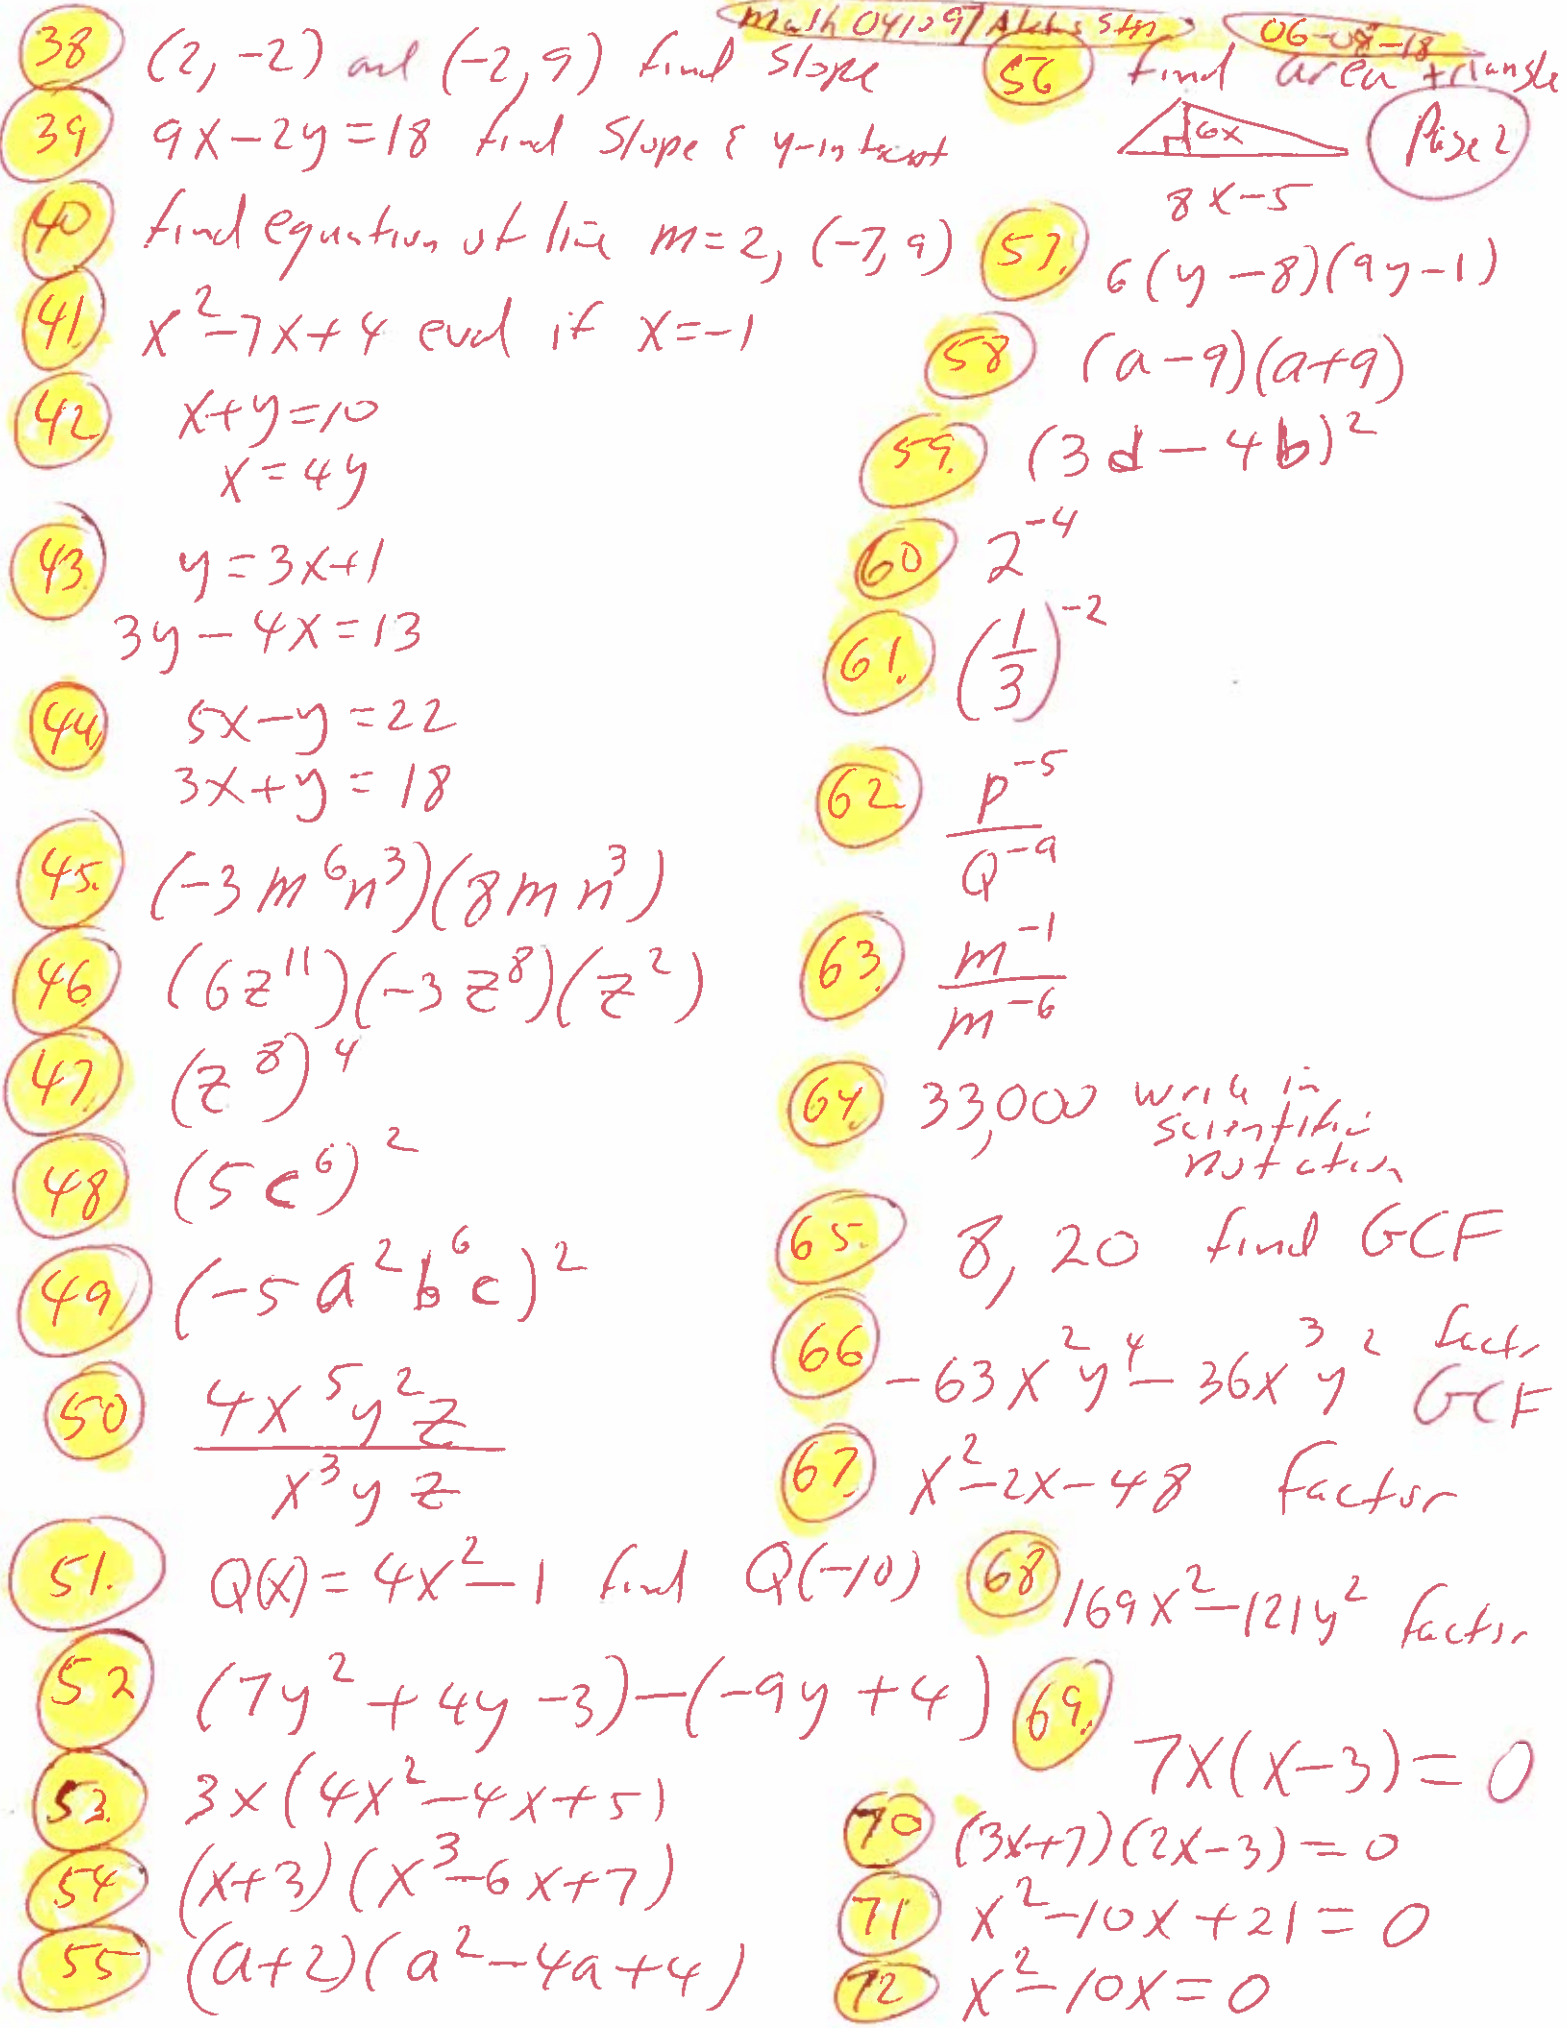 Math 0410 97 Aleks Stn 06-08-18
Page 2
38 (2, -2) and (-2, 9) find slope
39 9x-2y=18 find slope & y-intercept
40 find equation of line m=2, (-7, 9)
41. x²-7x+4 eval if x=-1
42 x+y=10
x=4y
43. y=3x+1
3y-4x=13
44. 5x-y=22
3x+y=18
45. (-3m⁶n³)(8mn³)
46. (6z¹¹)(-3z⁸)(z²)
47. (z⁸)⁴
48 (5c⁶)²
49. (-5a²b⁶c)²
50 4x⁵y²z
x³yz
51. Q(x)=4x²-1 find Q(-10)
52 (7y²+4y-3)-(-9y+4)
53. 3x(4x²-4x+5)
54 (x+3)(x³-6x+7)
55 (a+2)(a²-4a+4)
56 find area triangle
6x
8x-5
57. 6(y-8)(9y-1)
58 (a-9)(a+9)
59. (3d-4b)²
60 2⁻⁴
61. (1/3)⁻²
62. p⁻⁵
Q⁻⁹
63. m⁻¹
m⁻⁶
64. 33,000 write in
scientific
notation
65. 8, 20 find GCF
66 -63x²y⁴-36x³y² factr
GCF
67. x²-2x-48 factor
68 169x²-121y² factor
69. 7x(x-3)=0
70 (3x+7)(2x-3)=0
71 x²-10x+21=0
72 x²-10x=0